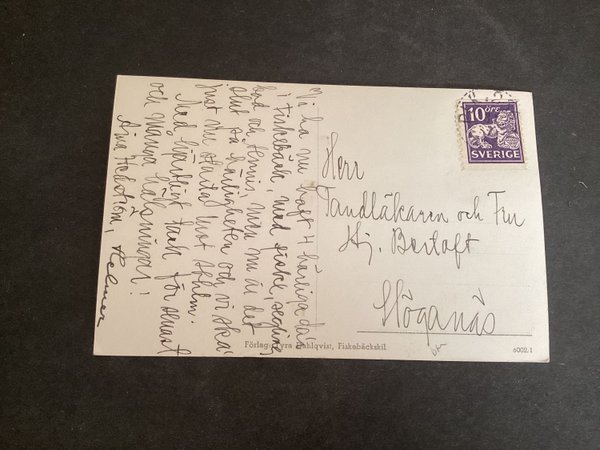 Vi ha nu haft 4 härliga da'r
i Fiskebäck, med fiske, segling,
bad och tennis, men nu är det
slut på härligheten och vi ska
just nu starta mot
Med hjärtligt tack för senast
och många hälsningar!
Hellström,
10 ÖRE
SVERIGE
Herr
Tandläkaren och Fru
Hj. Bertoft
Höganäs
Förlag: Tyra Dahlqvist, Fiskebäckskil.
6002.1